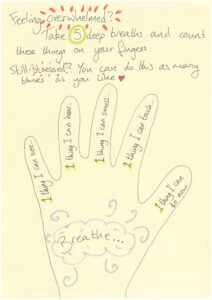 Feeling overwhelmed?
Take 5 deep breaths and count
these things on your fingers.
Still stressed? You can do this as many
times as you like ♥
1 thing I can see..
1 thing I can hear..
1 thing I can smell...
1 thing I can touch..
1 thing I can
do now
Breathe...